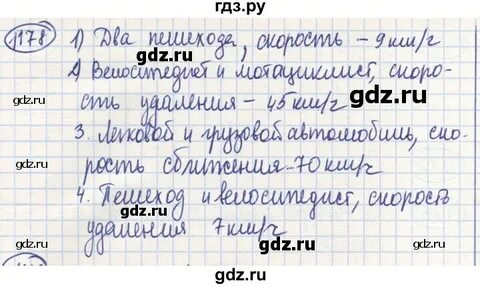 гдз.ру
1178 1) Два пешехода, скорость – 9 км/г
2) Велосипедист и мотациклист, скоро-
сть удаления – 45 км/г
3. Легковой и грузовой автомобиль, ско-
рость сближения – 70 км/г
4. Пешеход и велосипедист, скорость
удаления 7 км/г
gdz.ru
gdz.ru
gdz.ru
gdz.ru
gdz.ru
gdz.ru
gdz.ru
gdz.ru